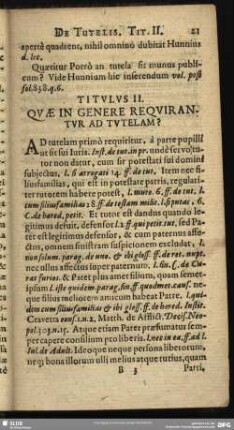 DE TUTELIS. TIT. II. 21
apertè quadrent, nihil omninò dubitat Hunnius
d. loc.
Quæritur Porrò an tutela sit munus publi-
cum? Vide Hunnium hic inserendum vol. post
fol. 858. q. 6.
TITVLVS II.
QVÆ IN GENERE REQVIRAN-
TVR AD TVTELAM?
AD tutelam primò requiritur, à parte pupilli
ut sit sui Juris. Inst. de tut. in pr. unde servo tu-
tor non datur, cum sit potestati sui domini
subjectus, l. si arrogati 14. ff. de tut. Item nec fi-
liusfamilias, qui est in potestate patris, regulari-
ter tutorem habere potest, l. muto. 6. ff. de tut. l.
cum filiusfamilias 28. ff. de testam milit. l. sputas, 6.
C. de hæred. petit. Et tutor est dandus quando le-
gitimus deficit, defensor l. 2. ff. qui petit tut, sed Pa-
ter est legitimus defensor, & cum paternus affe-
ctus, omnem sinistram suspicionem excludat, l.
non solum. parag. de uno. & ibi gloss. ff. de ret. nupt.
nec ullus affectus super paternum, l. fin. C. de Cu-
rat furios. & Pater plus amet filium, quam semet-
ipsum l. iste quidem parag. fin. ff. quod met. caus. ne-
que filius meliorem amicum habeat Patre. l. qui-
dem cum filiusfamilias & ibi gloss. ff. de hæred. Instit.
Cravetta cons. 1. n. 2. Matth. de Afflict. Decis. Neo-
pol. 303. n. 15. Atque etiam Pater præsumatur sem-
per capere consilium pro liberis. l. nec in ea. ff. ad l.
Iul. de Adult. Ideoque neque persona liberorum,
neq; bona illorum ulli melius atque tutius, quam
B 3 Patri,
SLUB
DFG